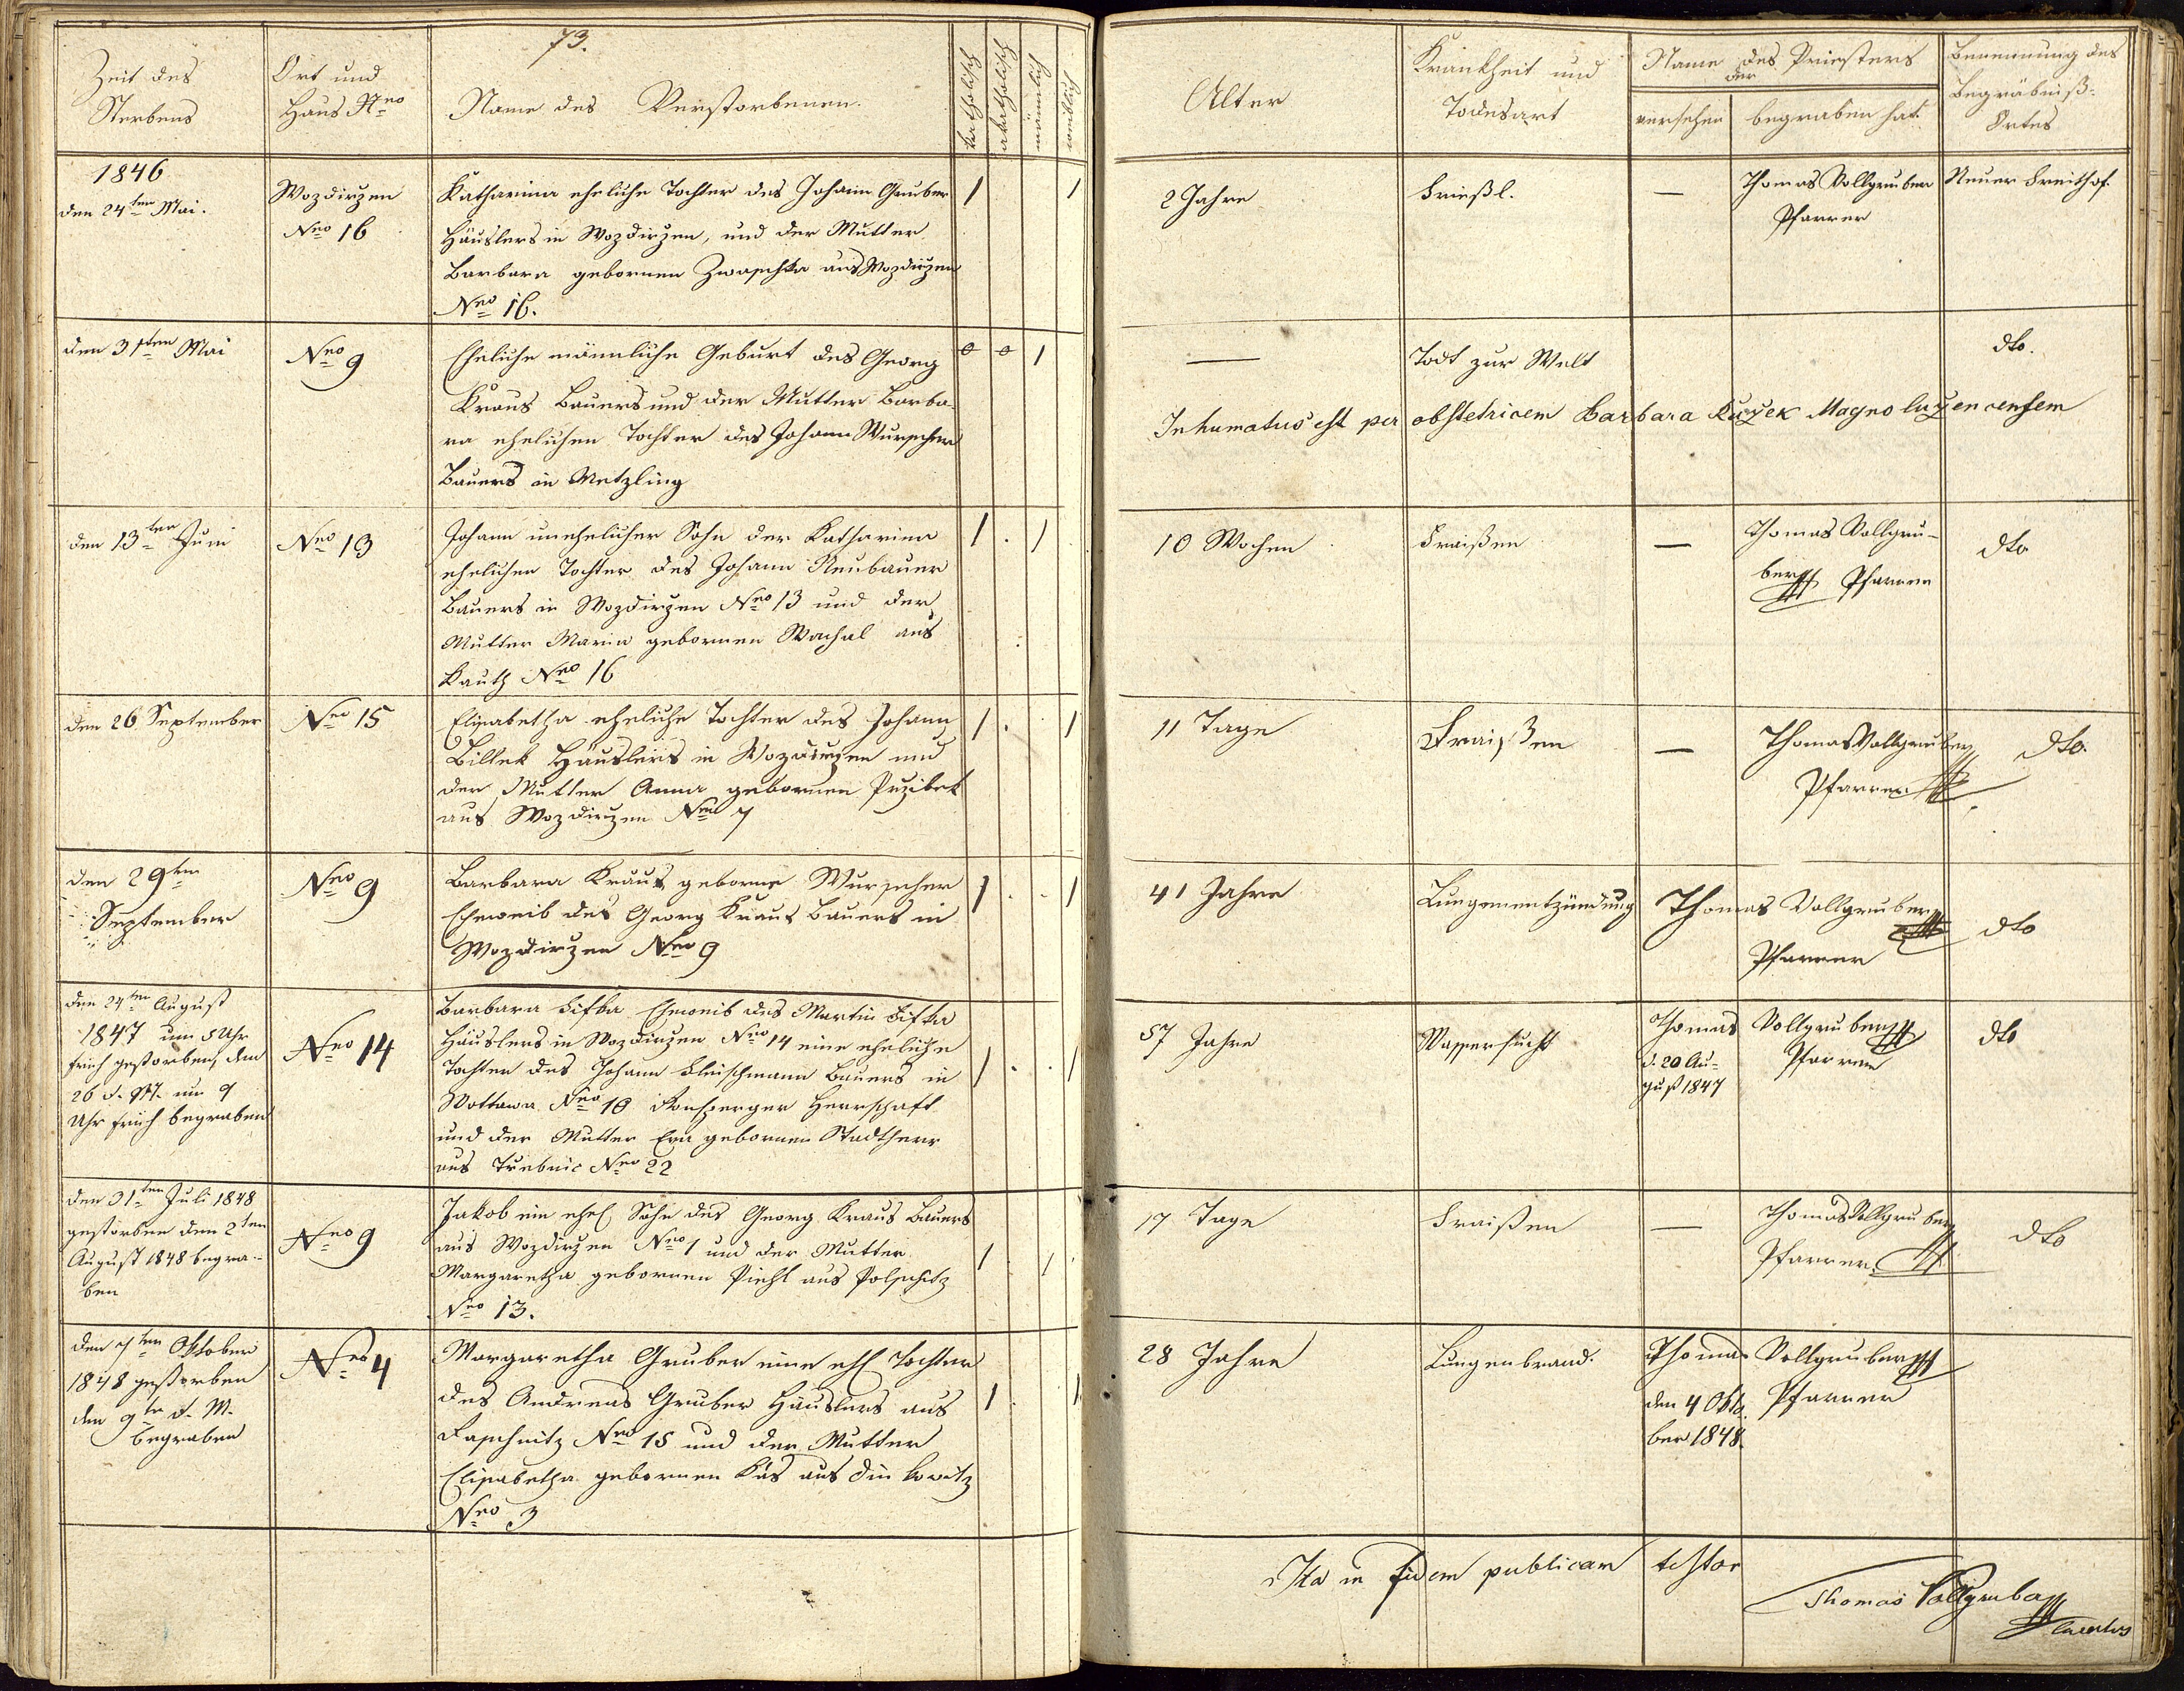 73.
Zeit des
Sterbens
Ort und
Haus Nro
Name des Verstorbenen.
katholisch
akatholisch
männlich
weiblich
Alter
Krankheit und
Todesart
Name des Priesters
der
versehen
begraben hat
Benennung des
Begräbniß-
Ortes
1846
den 24ten Mai.
Wozdirzen
Nro 16
Katharina eheliche Tochter des Johann Gruber
Häuslers in Wozdirzen, und der Mutter
Barbara gebornen Zwaschka aus Wozdirzen
Nro 16.
1 1
2 Jahre
Frießl.
—
Thomas Vollgruber
Pfarrer
Neuer Freithof.
den 31ten Mai
Nro 9
Eheliche männliche Geburt des Georg
Kraus Bauers und der Mutter Barba-
ra ehelichen Tochter des Johann Wurscher
Bauers in Metzling
0 0 1
—
Todt zur Welt
dto.
Inhumatus est per obstetricem Barbara Magnoluzencensem
den 13ten Juni
Nro 13
Johann unehelicher Sohn der Katharina
ehelichen Tochter des Johann Neubauer
Bauers in Wozdirzen Nro 13 und der
Mutter Maria gebornen Wachal aus
Kauth Nro 16
1 . 1
10 Wochen
Fraißen
—
Thomas Vollgru-
ber Pfarrer
dto
den 26 September
Nro 15
Elisabetha eheliche Tochter des Johann
Billek Häuslers in Wozdirzen und
der Mutter Anna gebornen Przibek
aus Wozdirzen Nro 7
1 . 1
11 Tage
Fraißen
—
Thomas Vollgruber
Pfarrer
dto.
den 29ten
September
Nro 9
Barbara Kraus geborne Wurscher
Eheweib des Georg Kraus Bauers in
Wozdirzen Nro 9
1 . . 1
41 Jahre
Lungenentzündung
Thomas Vollgruber
Pfarrer
dto
den 24ten August
1847 um 5 Uhr
früh gestorben, den
26 d. M. um 9
Uhr früh begraben
Nro 14
Barbara Eheweib des Martin
Häuslers in Wozdirzen Nro 14 eine eheliche
Tochter des Johann Fleischmann Bauers in
Wottawa Nro 10 Ronsperger Herrschaft
und der Mutter Eva gebornen Stadtherr
aus Trebnic Nro 22
1 . . 1
57 Jahre
Wassersucht
Thomas Vollgruber
d. 20 Au-
gust 1847
Pfarrer
dto
den 31ten Juli 1848
gestorben den 2ten
August 1848 begra-
ben
Nro 9
Jakob ein ehel Sohn des Georg Kraus Bauers
aus Wozdirzen Nro 1 und der Mutter
Margaretha gebornen Piehl aus Polschitz
Nro 13.
1 1
17 Tage
Fraißen
—
Thomas Vollgruber
Pfarrer
dto
den 7ten Oktober
1848 gestorben
den 9te d. M.
begraben
Nro 4
Margaretha Gruber eine ehl Tochter
des Andreas Gruber Häuslers aus
Raschnitz Nro 15 und der Mutter
Elisabetha gebornen Käs aus
Nro 3
1 1
28 Jahre
Lungenbrand.
Thomas Vollgruber
den 4 Okto-
ber 1848.
Pfarrer
Ita in fidem publicam testor
Thomas Vollgruber